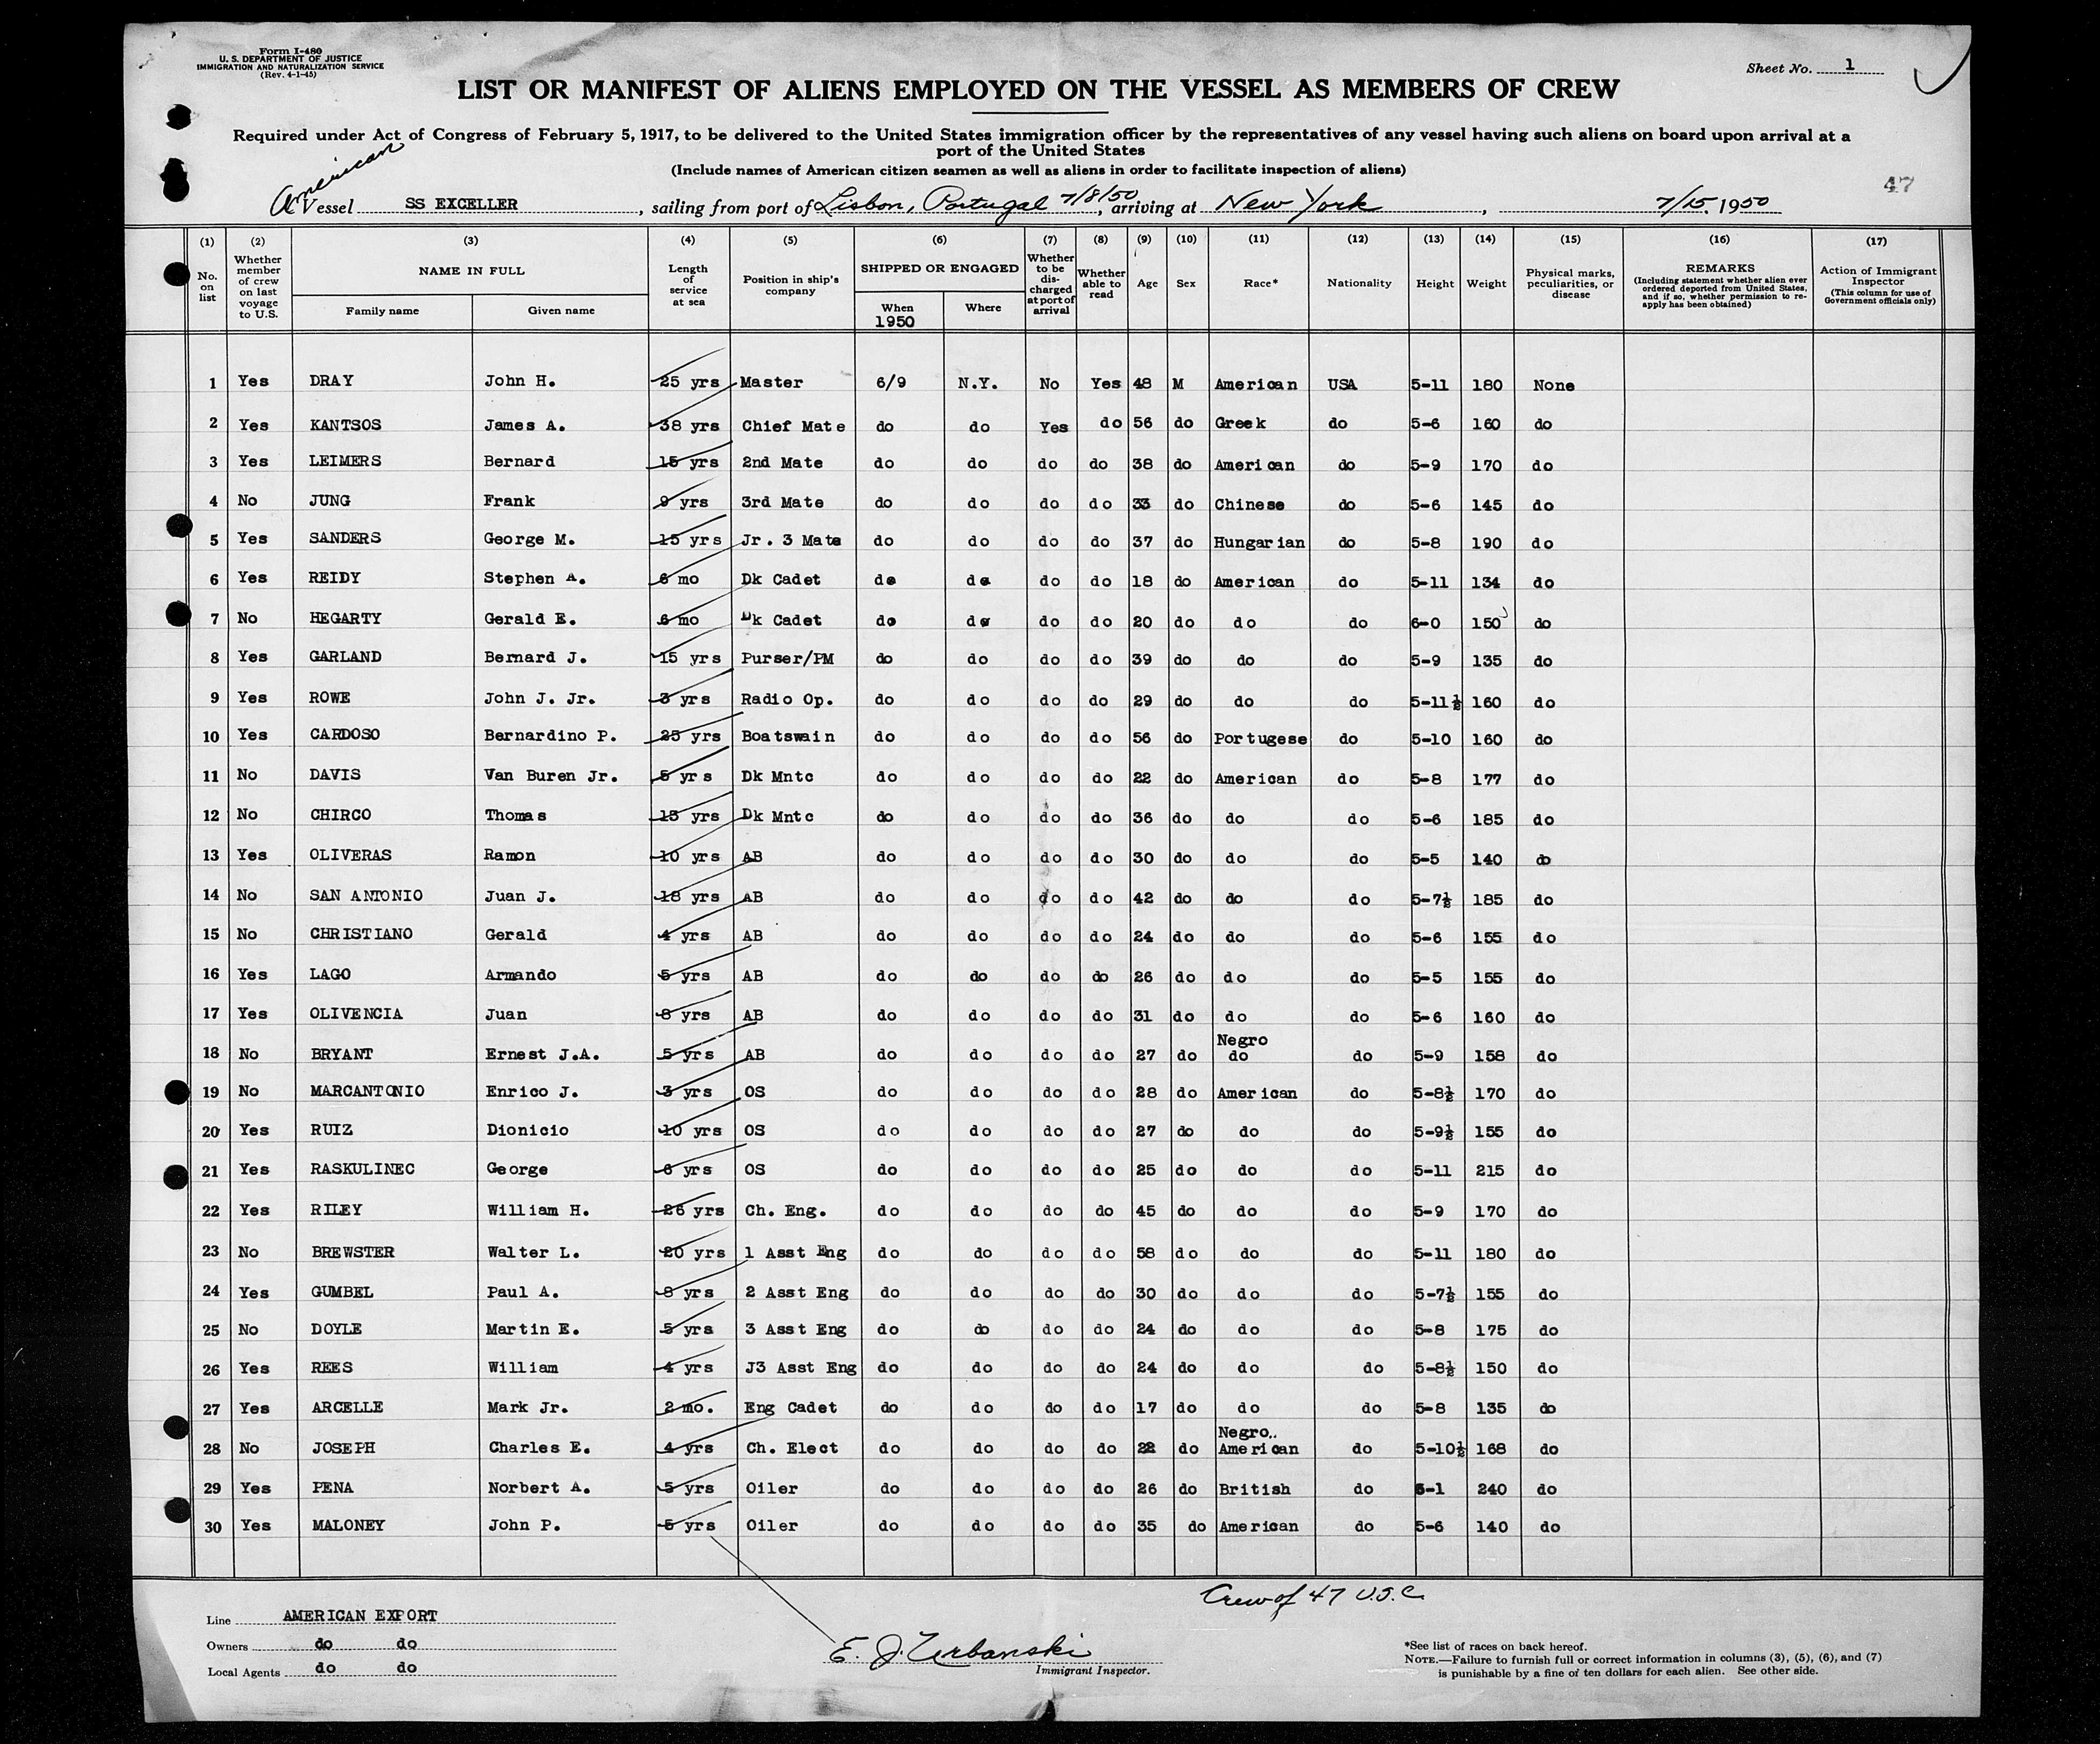 Form I-480
U. S. DEPARTMENT OF JUSTICE
IMMIGRATION AND NATURALIZATION SERVICE
(Rev. 4-1-45)
Sheet No. 1
LIST OR MANIFEST OF ALIENS EMPLOYED ON THE VESSEL AS MEMBERS OF CREW
Required under Act of Congress of February 5, 1917, to be delivered to the United States immigration officer by the representatives of any vessel having such aliens on board upon arrival at a
port of the United States
(Include names of American citizen seamen as well as aliens in order to facilitate inspection of aliens)
47
American
Vessel SS EXCELLER, sailing from port of Lisbon, Portugal 7/8/50, arriving at New York, 7/15, 1950
(1) (2) (3) (4) (5) (6) (7) (8) (9) (10) (11) (12) (13) (14) (15) (16) (17)
No. on list
Whether member of crew on last voyage to U.S.
NAME IN FULL
Family name Given name
Length of service at sea
Position in ship's company
SHIPPED OR ENGAGED
When 1950 Where
Whether to be discharged at port of arrival
Whether able to read
Age
Sex
Race*
Nationality
Height
Weight
Physical marks, peculiarities, or disease
REMARKS
(Including statement whether alien ever ordered deported from United States, and if so, whether permission to re-apply has been obtained)
Action of Immigrant Inspector
(This column for use of Government officials only)
1 Yes DRAY John H. 25 yrs Master 6/9 N.Y. No Yes 48 M American USA 5-11 180 None
2 Yes KANTSOS James A. 38 yrs Chief Mate do do Yes do 56 do Greek do 5-6 160 do
3 Yes LEIMERS Bernard 15 yrs 2nd Mate do do do do 38 do American do 5-9 170 do
4 No JUNG Frank 9 yrs 3rd Mate do do do do 33 do Chinese do 5-6 145 do
5 Yes SANDERS George M. 15 yrs Jr. 3 Mate do do do do 37 do Hungarian do 5-8 190 do
6 Yes REIDY Stephen A. 6 mo Dk Cadet do do do do 18 do American do 5-11 134 do
7 No HEGARTY Gerald E. 6 mo Dk Cadet do do do do 20 do do do 6-0 150 do
8 Yes GARLAND Bernard J. 15 yrs Purser/PM do do do do 39 do do do 5-9 135 do
9 Yes ROWE John J. Jr. 3 yrs Radio Op. do do do do 29 do do do 5-11½ 160 do
10 Yes CARDOSO Bernardino P. 25 yrs Boatswain do do do do 56 do Portugese do 5-10 160 do
11 No DAVIS Van Buren Jr. 5 yrs Dk Mntc do do do do 22 do American do 5-8 177 do
12 No CHIRCO Thomas 13 yrs Dk Mntc do do do do 36 do do do 5-6 185 do
13 Yes OLIVERAS Ramon 10 yrs AB do do do do 30 do do do 5-5 140 do
14 No SAN ANTONIO Juan J. 18 yrs AB do do do do 42 do do do 5-7½ 185 do
15 No CHRISTIANO Gerald 4 yrs AB do do do do 24 do do do 5-6 155 do
16 Yes LAGO Armando 5 yrs AB do do do do 26 do do do 5-5 155 do
17 Yes OLIVENCIA Juan 8 yrs AB do do do do 31 do do do 5-6 160 do
18 No BRYANT Ernest J.A. 5 yrs AB do do do do 27 do Negro do do 5-9 158 do
19 No MARCANTONIO Enrico J. 3 yrs OS do do do do 28 do American do 5-8½ 170 do
20 Yes RUIZ Dionicio 10 yrs OS do do do do 27 do do do 5-9½ 155 do
21 Yes RASKULINEC George 6 yrs OS do do do do 25 do do do 5-11 215 do
22 Yes RILEY William H. 26 yrs Ch. Eng. do do do do 45 do do do 5-9 170 do
23 No BREWSTER Walter L. 20 yrs 1 Asst Eng do do do do 58 do do do 5-11 180 do
24 Yes GUMBEL Paul A. 8 yrs 2 Asst Eng do do do do 30 do do do 5-7½ 155 do
25 No DOYLE Martin E. 5 yrs 3 Asst Eng do do do do 24 do do do 5-8 175 do
26 Yes REES William 4 yrs J3 Asst Eng do do do do 24 do do do 5-8½ 150 do
27 Yes ARCELLE Mark Jr. 2 mo. Eng Cadet do do do do 17 do do do 5-8 135 do
28 No JOSEPH Charles E. 4 yrs Ch. Elect do do do do 22 do Negro.. American do 5-10½ 168 do
29 Yes PENA Norbert A. 5 yrs Oiler do do do do 26 do British do 6-1 240 do
30 Yes MALONEY John P. 5 yrs Oiler do do do do 35 do American do 5-6 140 do
Crew of 47 U.S.C.
Line AMERICAN EXPORT
Owners do do
Local Agents do do
E. J. Urbanski
Immigrant Inspector.
*See list of races on back hereof.
NOTE.—Failure to furnish full or correct information in columns (3), (5), (6), and (7)
is punishable by a fine of ten dollars for each alien. See other side.